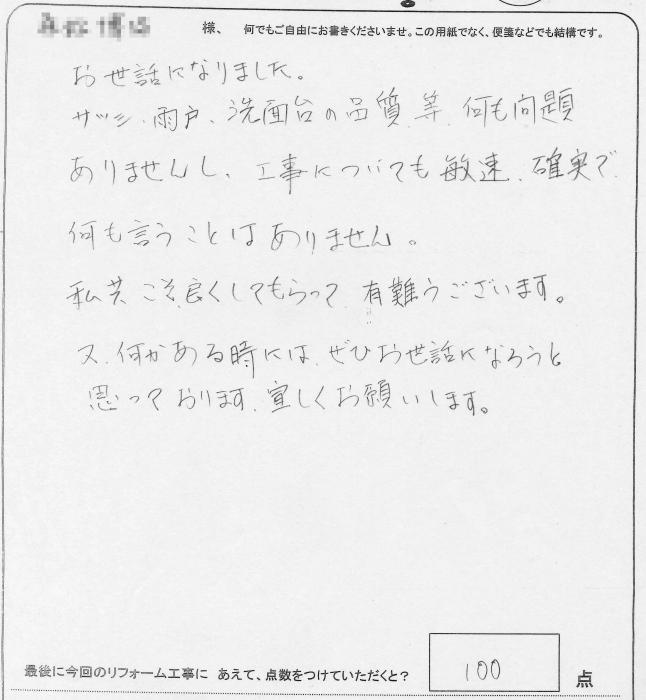 様、 何でもご自由にお書きくださいませ。この用紙でなく、便箋などでも結構です。
お世話になりました。
サッシ、雨戸、洗面台の品質、等、何も問題
ありませんし、工事についても敏速、確実で
何も言うことはありません。
私共こそ、良くしてもらって、有難うございます。
又、何かある時には、ぜひお世話になろうと
思っております、宜しくお願いします。
最後に今回のリフォーム工事に あえて、点数をつけていただくと? 100 点